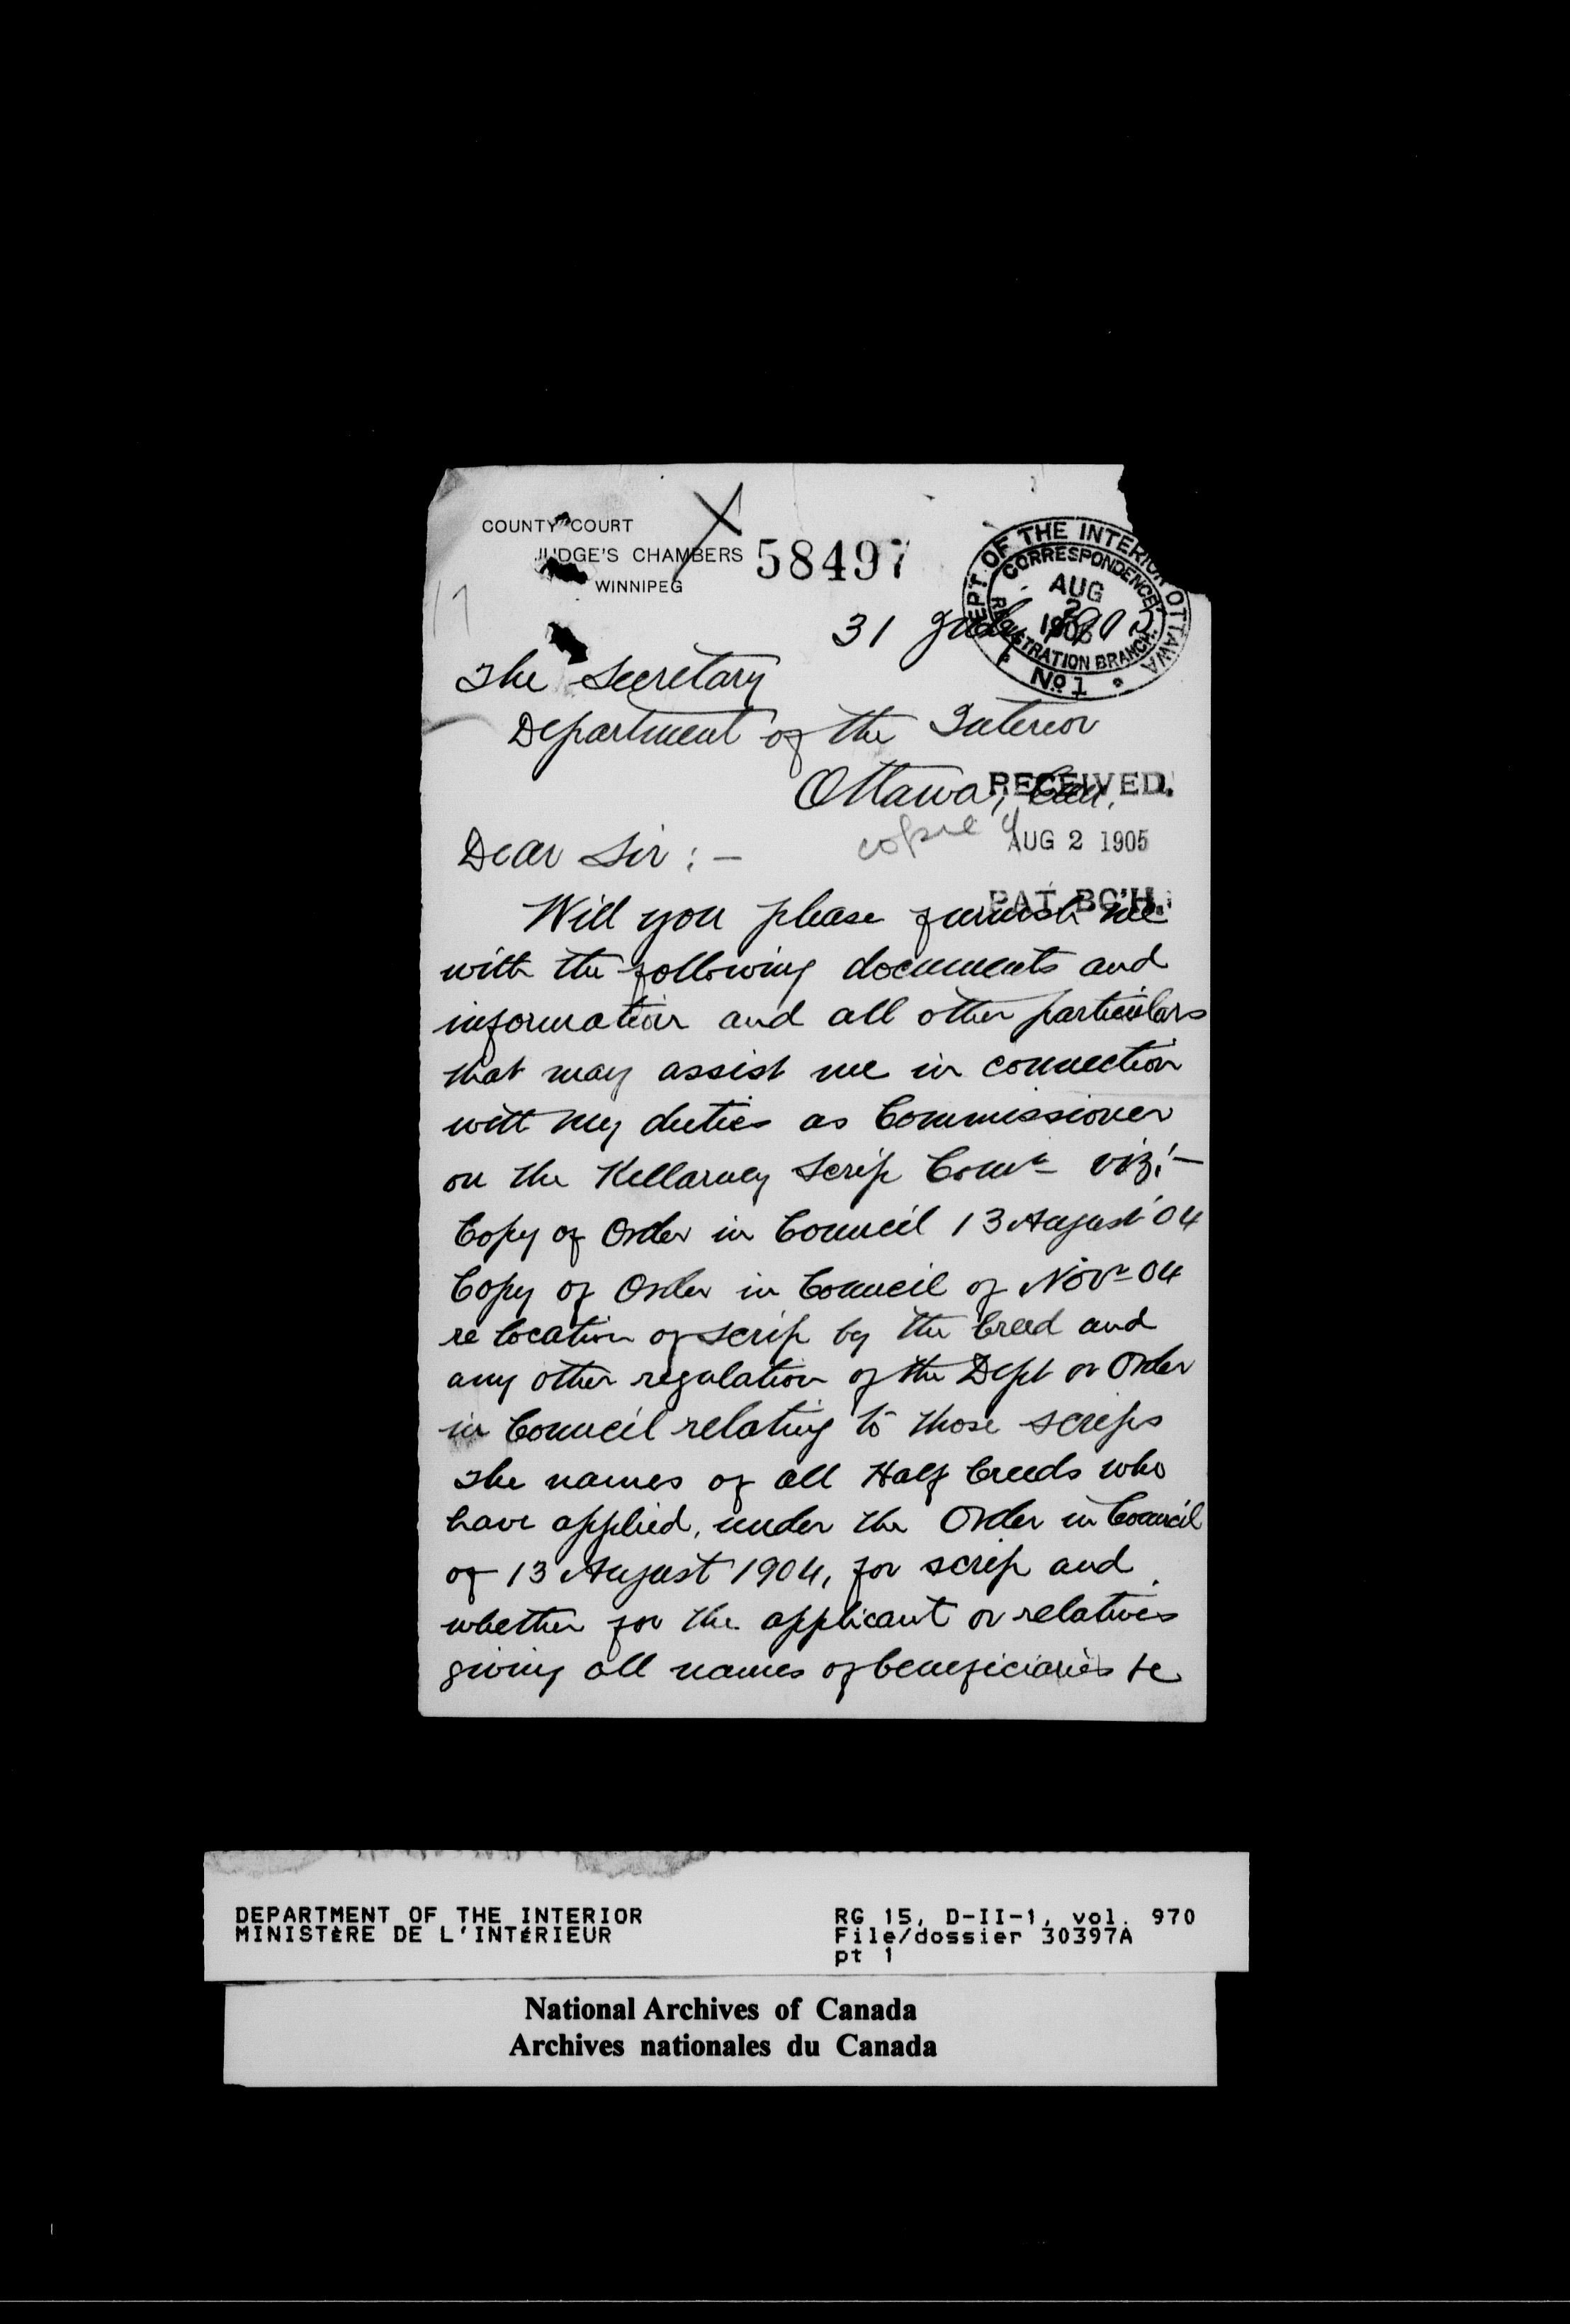 COUNTY COURT
JUDGE'S CHAMBERS
WINNIPEG
58497
DEPT. OF THE INTERIOR OTTAWA
CORRESPONDENCE
AUG
2
1905
REGISTRATION BRANCH
No 1
31 July 1905
The Secretary
Department of the Interior
Ottawa, Can.
RECEIVED.
AUG 2 1905
PAT. BC'H.
Dear Sir : —
Will you please furnish me
with the following documents and
information and all other particulars
that may assist me in connection
with my duties as Commissioner
on the Killarney Scrip Comn viz:—
Copy of Order in Council 13 August '04
Copy of Order in Council of Novr 04
re location of scrip by the breed and
any other regulation of the Dept or Order
in Council relating to those scrips
The names of all Half breeds who
have applied, under the Order in Council
of 13 August 1904, for scrip and
whether for the applicant or relatives
giving all names of beneficiaries &c
DEPARTMENT OF THE INTERIOR
MINISTÈRE DE L'INTÉRIEUR
RG 15, D-II-1, vol. 970
File/dossier 30397A
pt 1
National Archives of Canada
Archives nationales du Canada